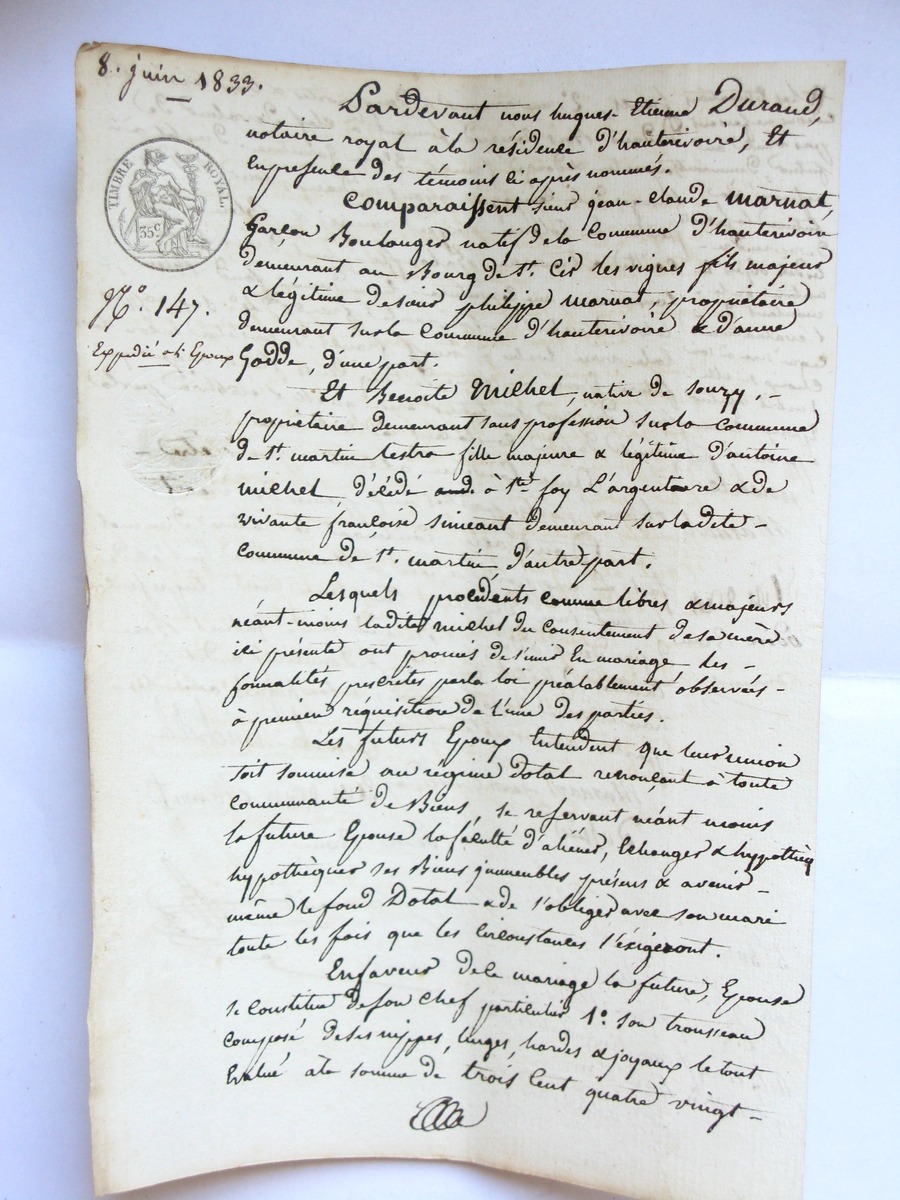 8. juin 1833.
TIMBRE ROYAL.
35c
N.o 147.
Expédié aux Epoux
Pardevant nous hugues-Etienne Durand,
notaire royal à la résidence d'hauterivoire, Et
En présence des témoins ci après nommés.
Comparaissent sieur jean-claude marnat,
Garçon Boulanger natif de la Commune d'hauterivoire
demeurant au Bourg de st. Cir les vignes fils majeur
& légitime de sieur philippe marnat, propriétaire
demeurant sur la commune d'hauterivoire & d'anne
Gadde, d'une part.
Et Benoite Michel, native de souzy, -
propriétaire demeurant sans profession sur la commune
de st. martin lestra fille majeure & légitime d'antoine
michel décédé à ste. foy L'argentiere & de
vivante françoise simeant demeurant sur la dite -
commune de st. martin d'autre part.
Lesquels procédents comme libres & majeurs
néant-moins ladite michel du consentement de sa mère
ici présente ont promis de s'unir En mariage les -
formalités prescrites par la loi préalablement observées -
à premiere réquisition de l'une des parties.
Les futurs Epoux Entendent que leur union
soit soumise au régime dotal renonçant à toute
communauté de Biens, se reservant néant moins
la future Epouse la faculté d'aliéner, Echanger & hypothéq
hypothèquer ses Biens immeubles présens & avenir -
même le fond Dotal & de s'obliger avec son mari
toute les fois que les Circonstances l'éxigeront.
En faveur de ce mariage la future, Epouse
se Constitue de son chef particulier 1o. son trousseau
composé de ses nippes, linges, hardes & joyaux le tout
Evalué à la somme de trois Cent quatre vingt -